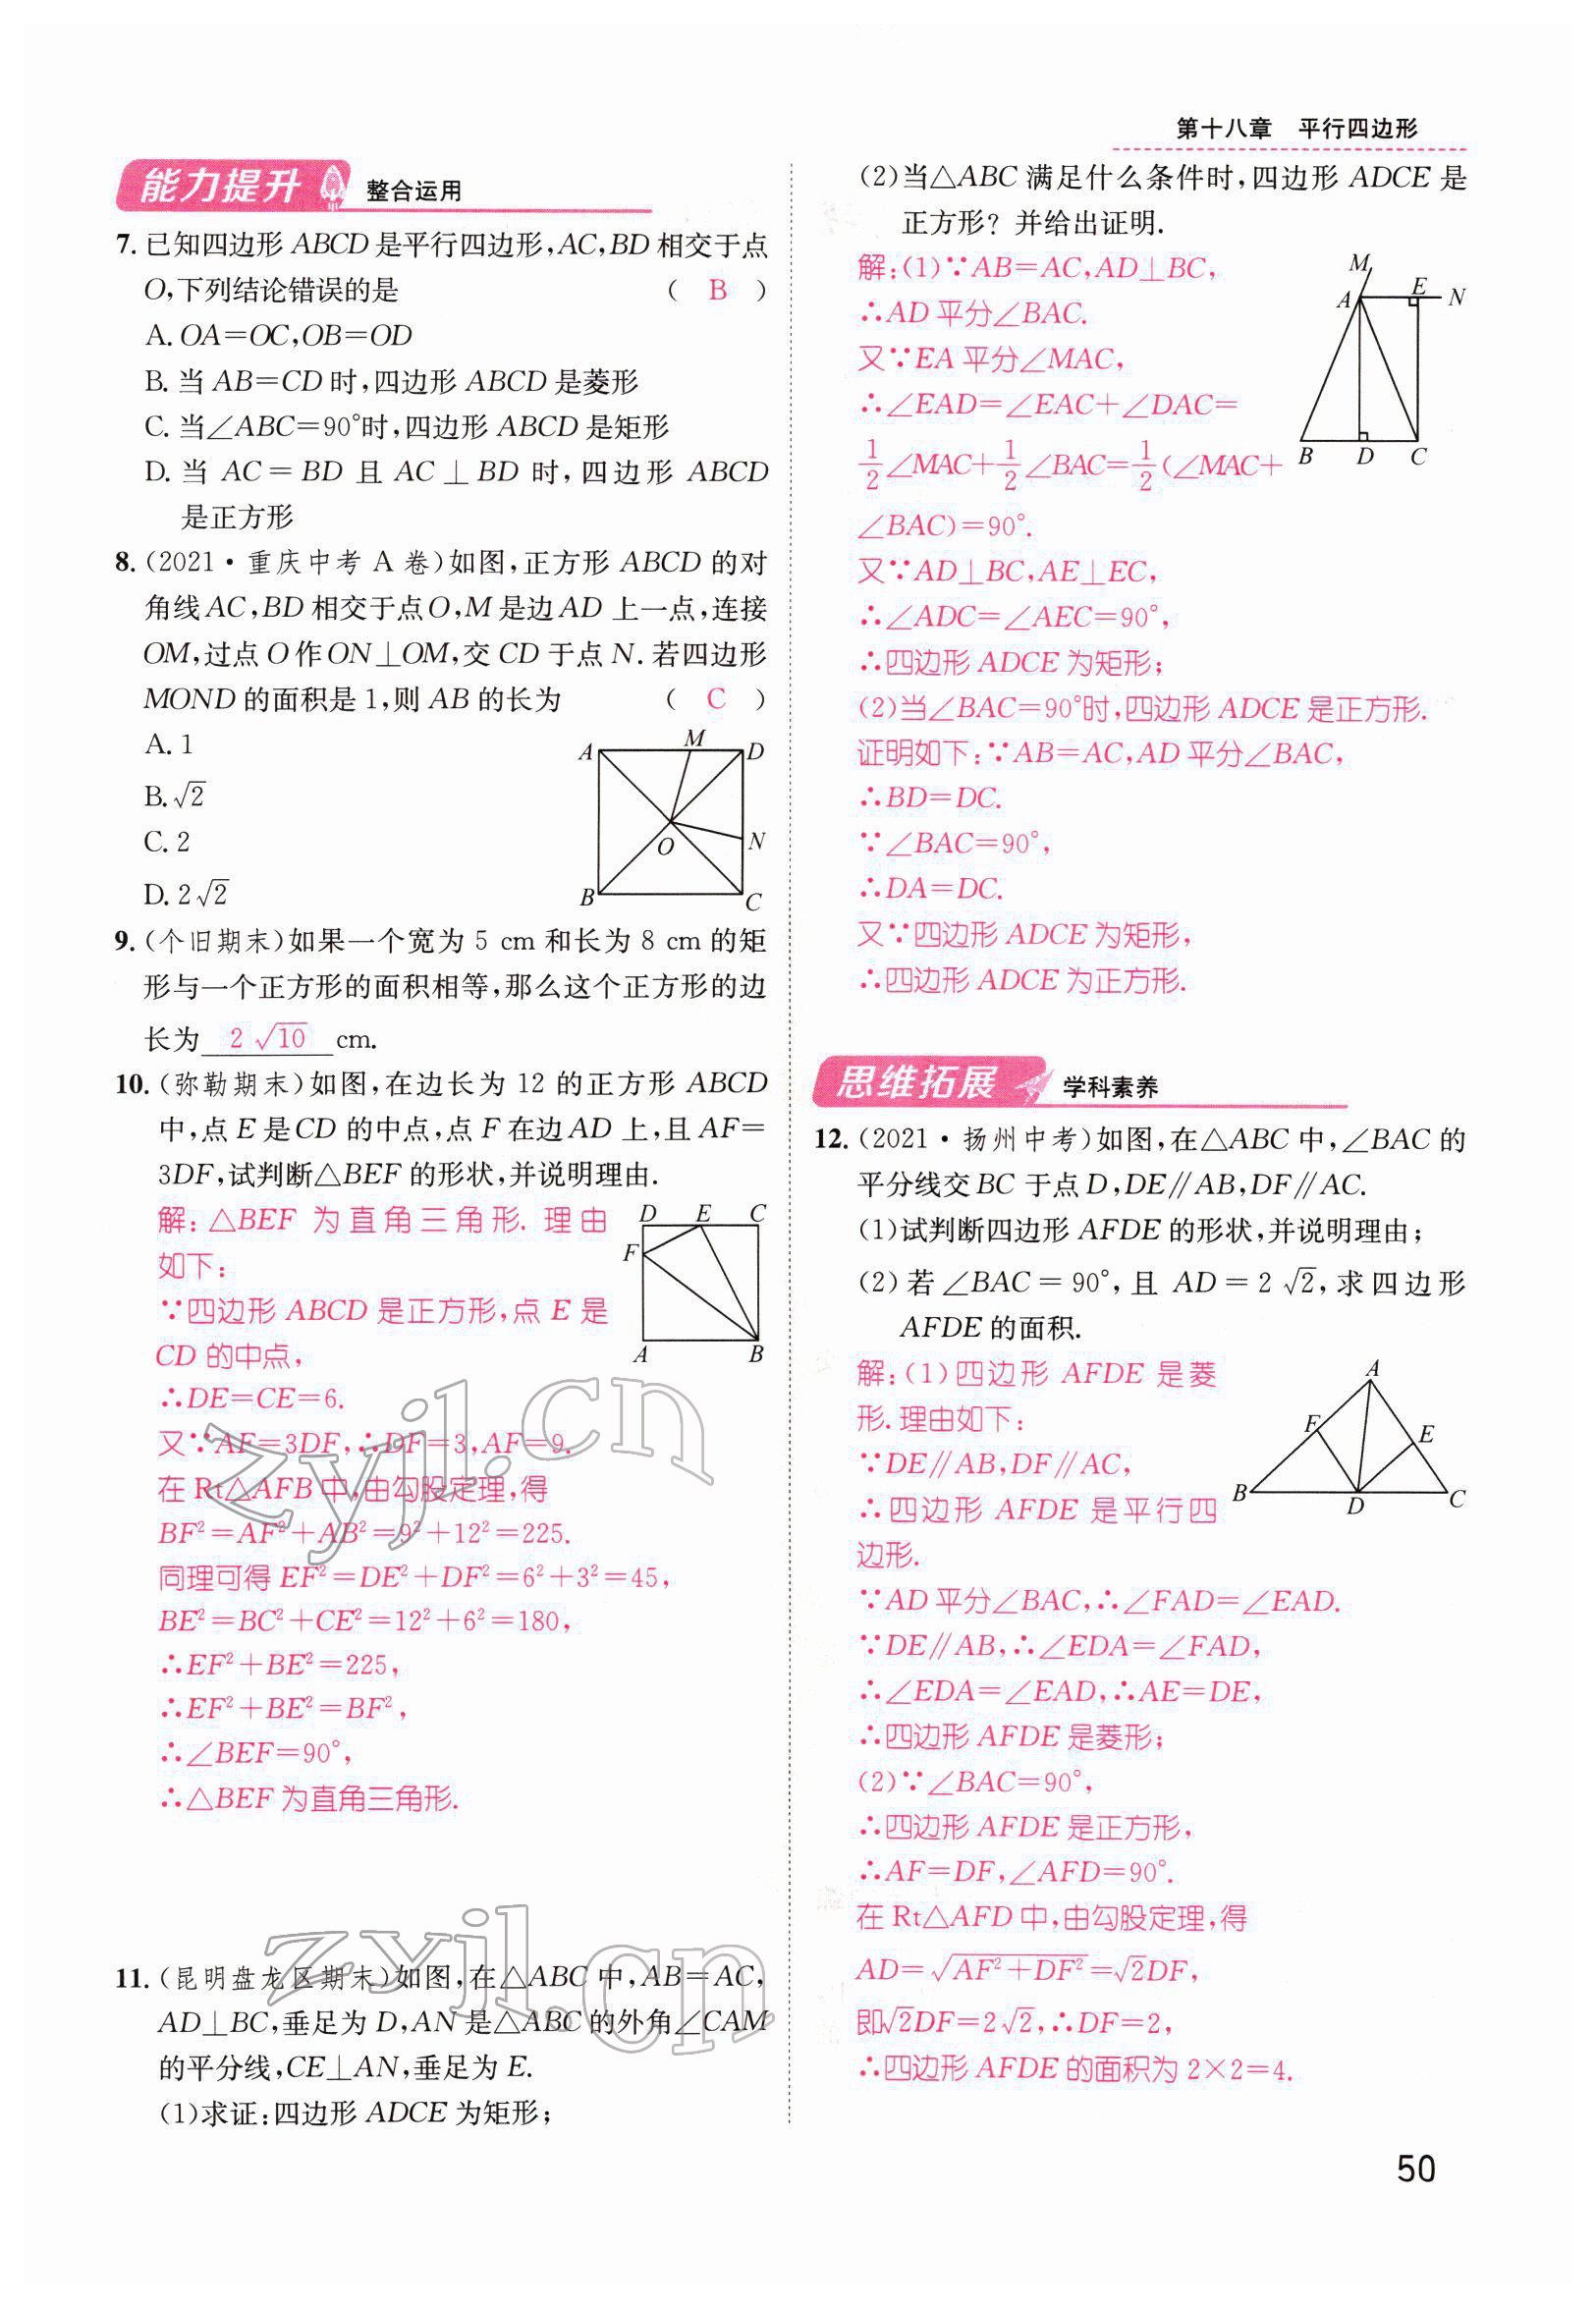 第十八章 平行四边形
能力提升 整合运用
7. 已知四边形 ABCD 是平行四边形,AC,BD 相交于点
O,下列结论错误的是 ( B )
A. OA=OC,OB=OD
B. 当 AB=CD 时,四边形 ABCD 是菱形
C. 当∠ABC=90°时,四边形 ABCD 是矩形
D. 当 AC=BD 且 AC⊥BD 时,四边形 ABCD
是正方形
8. (2021·重庆中考 A 卷)如图,正方形 ABCD 的对
角线 AC,BD 相交于点 O,M 是边 AD 上一点,连接
OM,过点 O 作 ON⊥OM,交 CD 于点 N. 若四边形
MOND 的面积是 1,则 AB 的长为 ( C )
A. 1
B. √2
C. 2
D. 2√2
A M D
O N
B C
9. (个旧期末)如果一个宽为 5 cm 和长为 8 cm 的矩
形与一个正方形的面积相等,那么这个正方形的边
长为 2√10 cm.
10. (弥勒期末)如图,在边长为 12 的正方形 ABCD
中,点 E 是 CD 的中点,点 F 在边 AD 上,且 AF=
3DF,试判断△BEF 的形状,并说明理由.
解:△BEF 为直角三角形. 理由
如下:
∵四边形 ABCD 是正方形,点 E 是
CD 的中点,
∴DE=CE=6.
又∵AF=3DF,∴DF=3,AF=9.
在 Rt△AFB 中,由勾股定理,得
BF²=AF²+AB²=9²+12²=225.
同理可得 EF²=DE²+DF²=6²+3²=45,
BE²=BC²+CE²=12²+6²=180,
∴EF²+BE²=225,
∴EF²+BE²=BF²,
∴∠BEF=90°,
∴△BEF 为直角三角形.
D E C
F
A B
zyjl.cn
zyjl.cn
11. (昆明盘龙区期末)如图,在△ABC 中,AB=AC,
AD⊥BC,垂足为 D,AN 是△ABC 的外角∠CAM
的平分线,CE⊥AN,垂足为 E.
(1)求证:四边形 ADCE 为矩形;
(2)当△ABC 满足什么条件时,四边形 ADCE 是
正方形? 并给出证明.
解:(1)∵AB=AC,AD⊥BC,
∴AD 平分∠BAC.
又∵EA 平分∠MAC,
∴∠EAD=∠EAC+∠DAC=
1/2∠MAC+1/2∠BAC=1/2(∠MAC+
∠BAC)=90°.
又∵AD⊥BC,AE⊥EC,
∴∠ADC=∠AEC=90°,
∴四边形 ADCE 为矩形;
(2)当∠BAC=90°时,四边形 ADCE 是正方形.
证明如下:∵AB=AC,AD 平分∠BAC,
∴BD=DC.
∵∠BAC=90°,
∴DA=DC.
又∵四边形 ADCE 为矩形,
∴四边形 ADCE 为正方形.
M
A E N
B D C
思维拓展 学科素养
12. (2021·扬州中考)如图,在△ABC 中,∠BAC 的
平分线交 BC 于点 D,DE∥AB,DF∥AC.
(1)试判断四边形 AFDE 的形状,并说明理由;
(2)若∠BAC=90°,且 AD=2√2,求四边形
AFDE 的面积.
解:(1)四边形 AFDE 是菱
形. 理由如下:
∵DE∥AB,DF∥AC,
∴四边形 AFDE 是平行四
边形.
∵AD 平分∠BAC,∴∠FAD=∠EAD.
∵DE∥AB,∴∠EDA=∠FAD,
∴∠EDA=∠EAD,∴AE=DE,
∴四边形 AFDE 是菱形;
(2)∵∠BAC=90°,
∴四边形 AFDE 是正方形,
∴AF=DF,∠AFD=90°.
在 Rt△AFD 中,由勾股定理,得
AD=√(AF²+DF²)=√2DF,
即√2DF=2√2,∴DF=2,
∴四边形 AFDE 的面积为 2×2=4.
A
F E
B D C
50